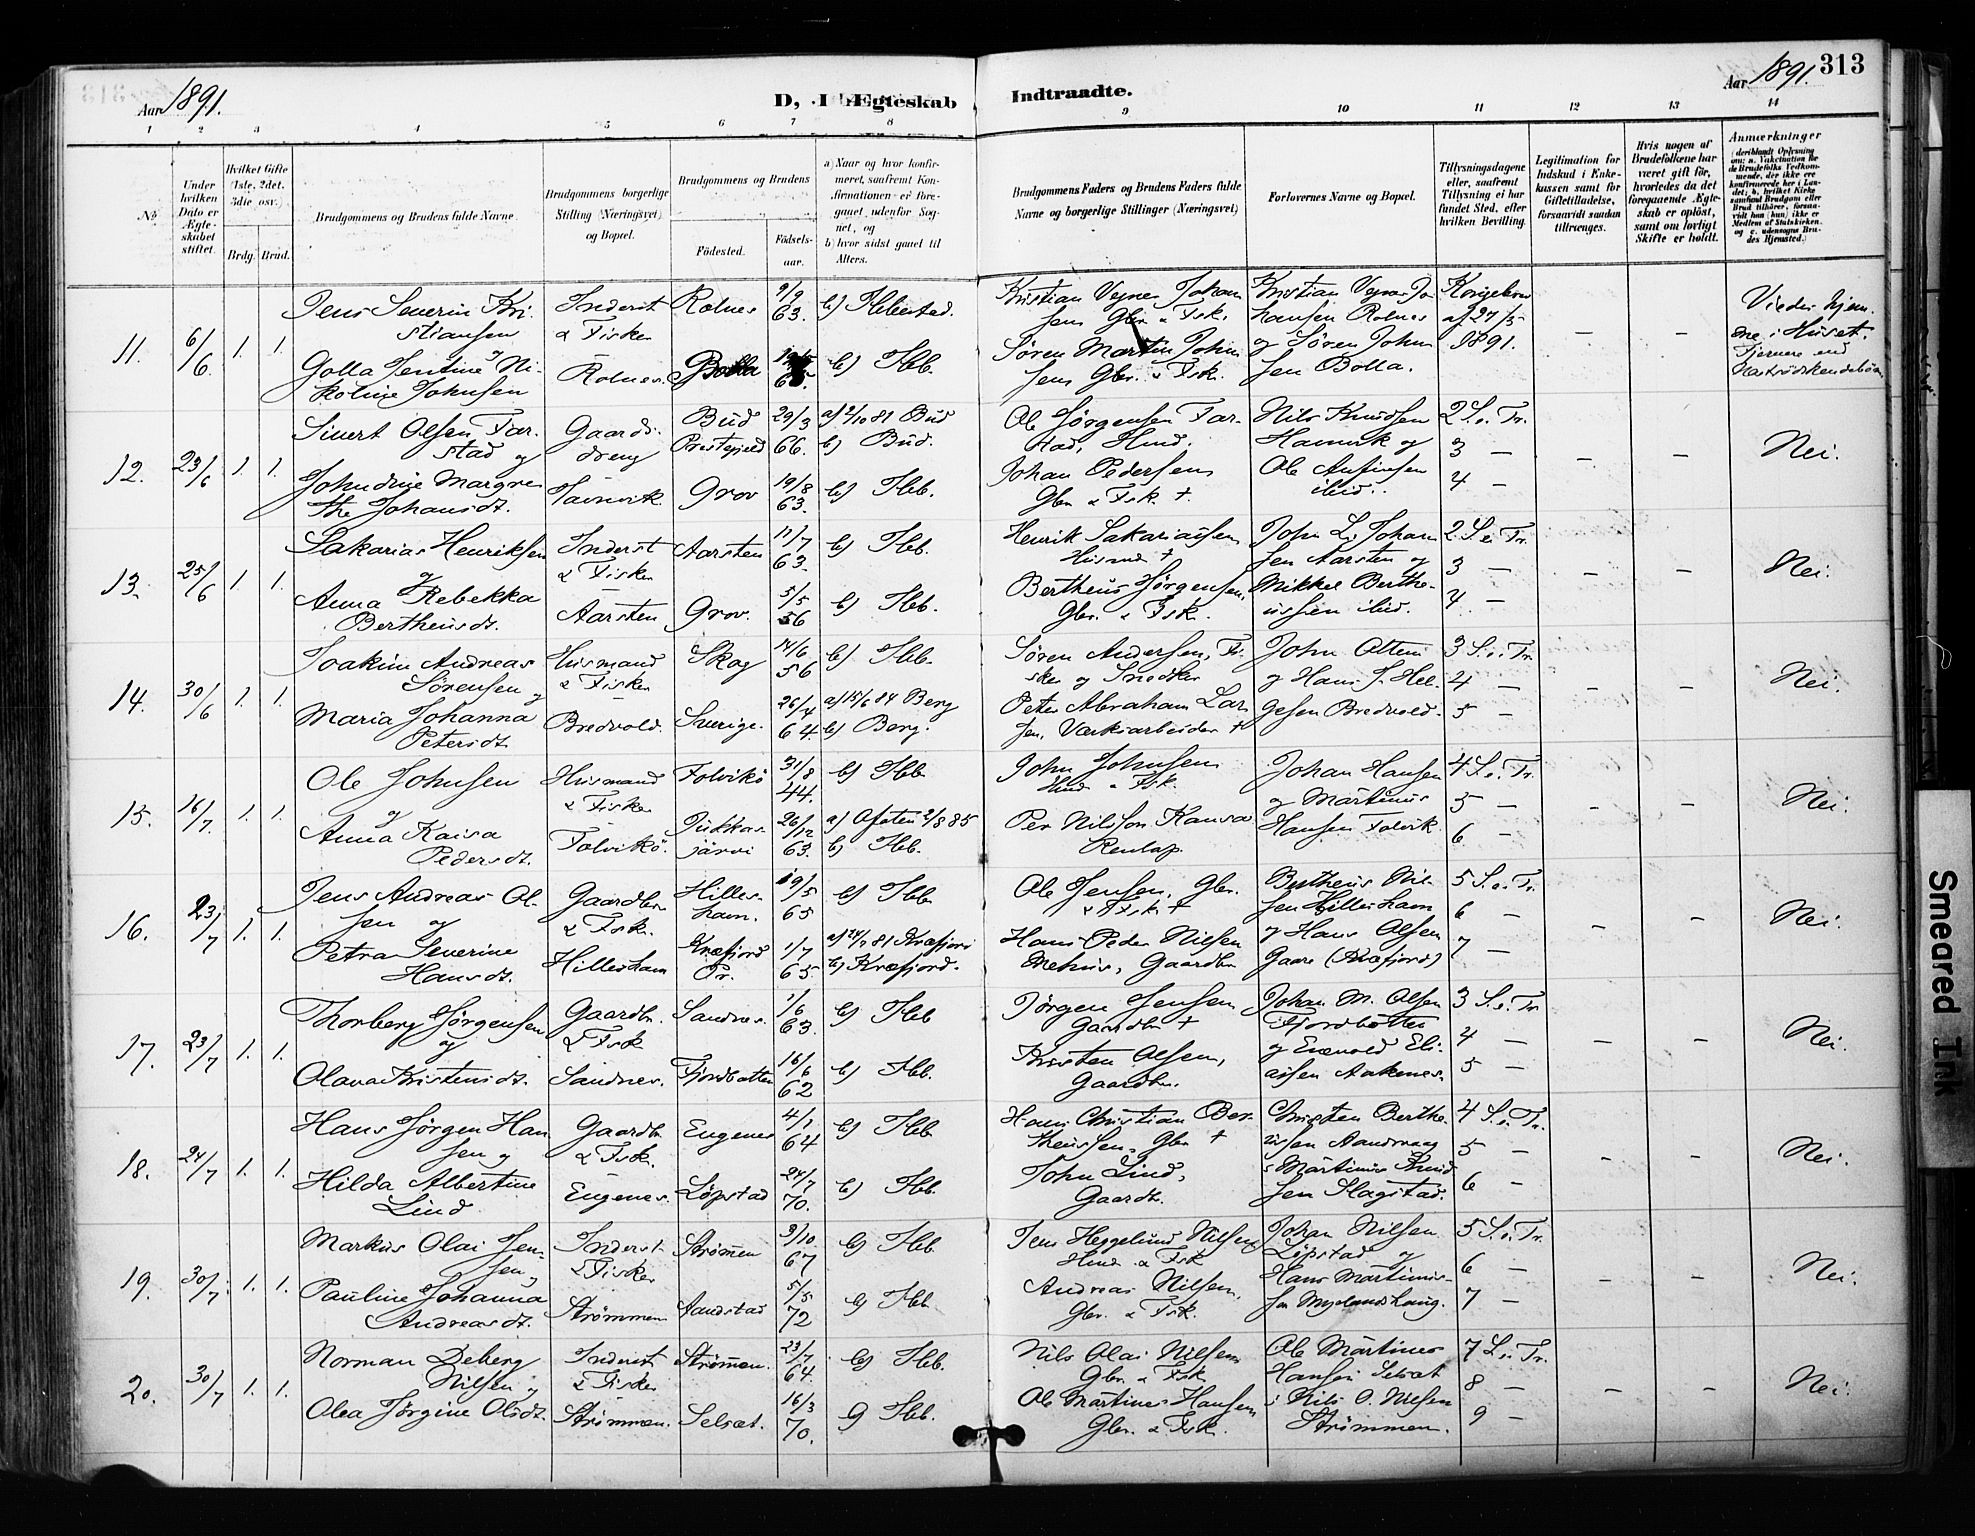 313
Aar 1891.
D, I Ægteskab Indtraadte.
Aar 1891.
1 2 3 4 5 6 7 8 9 10 11 12 13 14
No.
Under hvilken Dato er Ægteskabet stiftet.
Hvilket Gifte (1ste, 2det, 3die osv.)
Brdg. Brud.
Brudgommens og Brudens fulde Navne.
Brudgommens borgerlige Stilling (Næringsvei) og Bopæl.
Brudgommens og Brudens
Födested.
Födselsaar.
a) Naar og hvor konfirmeret, saafremt Konfirmationen er foregaaet udenfor Sognet, og
b) hvor sidst gaaet til Alters.
Brudgommens Faders og Brudens Faders fulde Navne og borgerlige Stillinger (Næringsvei)
Forlovernes Navne og Bopæl.
Tillysningsdagene eller, saafremt Tillysning ei har fundet Sted, efter hvilken Bevilling.
Legitimation for Indskud i Enkekassen samt for Giftetilladelse, forsaavidt saadan tiltrænges.
Hvis nogen af Brudefolkene har været gift för, hvorledes da det foregaaende Ægteskab er oplöst, samt om lovligt Skifte er holdt.
Anmærkninger
11. 6/6 1. 1.
Jens Severin Kristiansen og
Inderst & Fisker
Rolnes 9/9 63. b) Ibbestad.
Kristian Vegner Johansen Gbr. & Fsk.
Kristian Vegner Johansen Rolnes
Kongebrev af 27/5 1891.
– –
Viedes hjemme i Huset.
Golla Jentine Nikoline Johnsen
Rolnes. Bolla b) Ibb.
Søren Martin Johnsen Gbr. & Fsk.
og Søren Johnsen Bolla.
12. 23/6 1. 1.
Sivert Olsen Farstad og
Gaardsdreng
Bud Prestegjeld 29/3 66. a) 2/10 81 Bud b) Bud.
Ole Jørgensen Farstad, Hmd.
Nils Knudsen Hamnvik og
2 S. e. Tr. 3 – 4 –
– –
Nei.
Johndrine Margrethe Johansdt.
Havnvik Grov 19/8 63. b) Ibb.
Johan Pedersen Gbr. & Fsk. †
Ole Anfinsen ibid.
13. 25/6 1. 1.
Sakarias Henriksen og
Inderst & Fisker
Aarsten 11/7 63. b) Ibb.
Henrik Sakariassen Husmd †
John L. Johansen Aarsten og
2 S. e. Tr. 3 – 4 –
– –
Nei.
Anna Rebekka Bertheusdt.
Aarsten Grov. 5/5 56 b) Ibb.
Bertheus Jørgensen, Gbr. & Fsk.
Mikkel Bertheussen ibid.
14. 30/6 1. 1.
Joakim Andreas Sørensen og
Husmand & Fisker
Skog 14/6 56 b) Ibb.
Søren Andersen, Fisker og Snedker
John Olsen
3 S. e. Tr. 4 – 5 –
– –
Nei.
Maria Johanna Petersdt.
Bredvold. Sverige. 26/4 64. a) 15/6 84 Berg b) Berg.
Peter Abraham Larsen, Værksarbeider †
og Hans J. Helgesen Bredvold.
15. 16/7. 1. 1.
Ole Johnsen og
Husmand & Fisker
Folvikø 31/8 44. b) Ibb.
John Johnsen Hmd & Fsk.
Johan Hansen
4 S. e. Tr. 5 – 6 –
– –
Nei.
Anna Kaisa Pedersdt.
Folvikø. Jukkasjärvi 26/12 63. a) Ofoten 2/8 85 b) Ibb.
Per Nilsson Kansa Renlap
og Martinus Hansen Folvik
16. 23/7 1. 1.
Jens Andreas Olsen og
Gaardbr. & Fsk.
Hilleshavn. 19/5 65 b) Ibb
Ole Jensen, Gbr. & Fsk †
Bertheus Nilsen Hilleshavn
5 S. e. Tr. 6 – 7 –
– –
Nei.
Petra Severine Hansdt.
Hilleshavn Kvæfjord Pr. 1/7 65. b) Kvæfjord.
Hans Peder Nilsen Mehus, Gaardbr
og Hans Olsen Gaare (Kvæfjord)
17. 23/7 1. 1.
Thorberg Jørgensen og
Gaardbr. & Fsk
Sandnes. 1/6 63. b) Ibb
Jørgen Jensen Gaardbr †
Johan M. Olsen Fjordbotten
3 S. e. Tr. 4 – 5 –
– –
Nei.
Olava Kristensdt.
Sandnes. Fjordbotten 16/6 62 b) Ibb.
Kristen Olsen, Gaardbr.
og Enevold Eliassen Aakenes.
18. 24/7 1. 1.
Hans Jørgen Hansen og
Gaardbr. & Fsk.
Engenes 4/1 64 b) Ibb
Hans Christian Bertheussen, Gbr †
Christen Bertheussen Aandvaag
4 S. e. Tr. 5 – 6 –
– –
Nei.
Hilda Albertine Lind
Engenes. Løpstad 24/7 70. b) Ibb.
John Lind, Gaardb.
& Martinus Knudsen Slagstad.
19. 30/7. 1. 1.
Markus Olai Jensen og
Inderst & Fisker
Strømmen 3/10 67 b) Ibb
Jens Heggelund Nilsen Hmd. & Fsk
Johan Nilsen Løpstad og
5 S. e. Tr. 6 – 7 –
– –
Nei.
Pauline Johanna Andreasdt.
Strømmen Aandstad 5/5 72 b) Ibb
Andreas Nilsen, Gbr. & Fsk.
Hans Martinussen Myrlandshaug.
20. 30/7 1. 1.
Norman Deberg Nilsen og
Inderst & Fisker
Strømmen. 23/7 64. b) Ibb.
Nils Olai Nilsen Gbr. & Fsk
Ole Martines Hansen Selset
7 S. e. Tr. 8 – 9 –
– –
Nei.
Olea Jørgine Olsdt.
Strømmen. Selset. 16/3 70. b) Ibb.
Ole Martines Hansen Gbr. & Fsk.
& Nils O. Nilsen Strømmen.
Smeared Ink